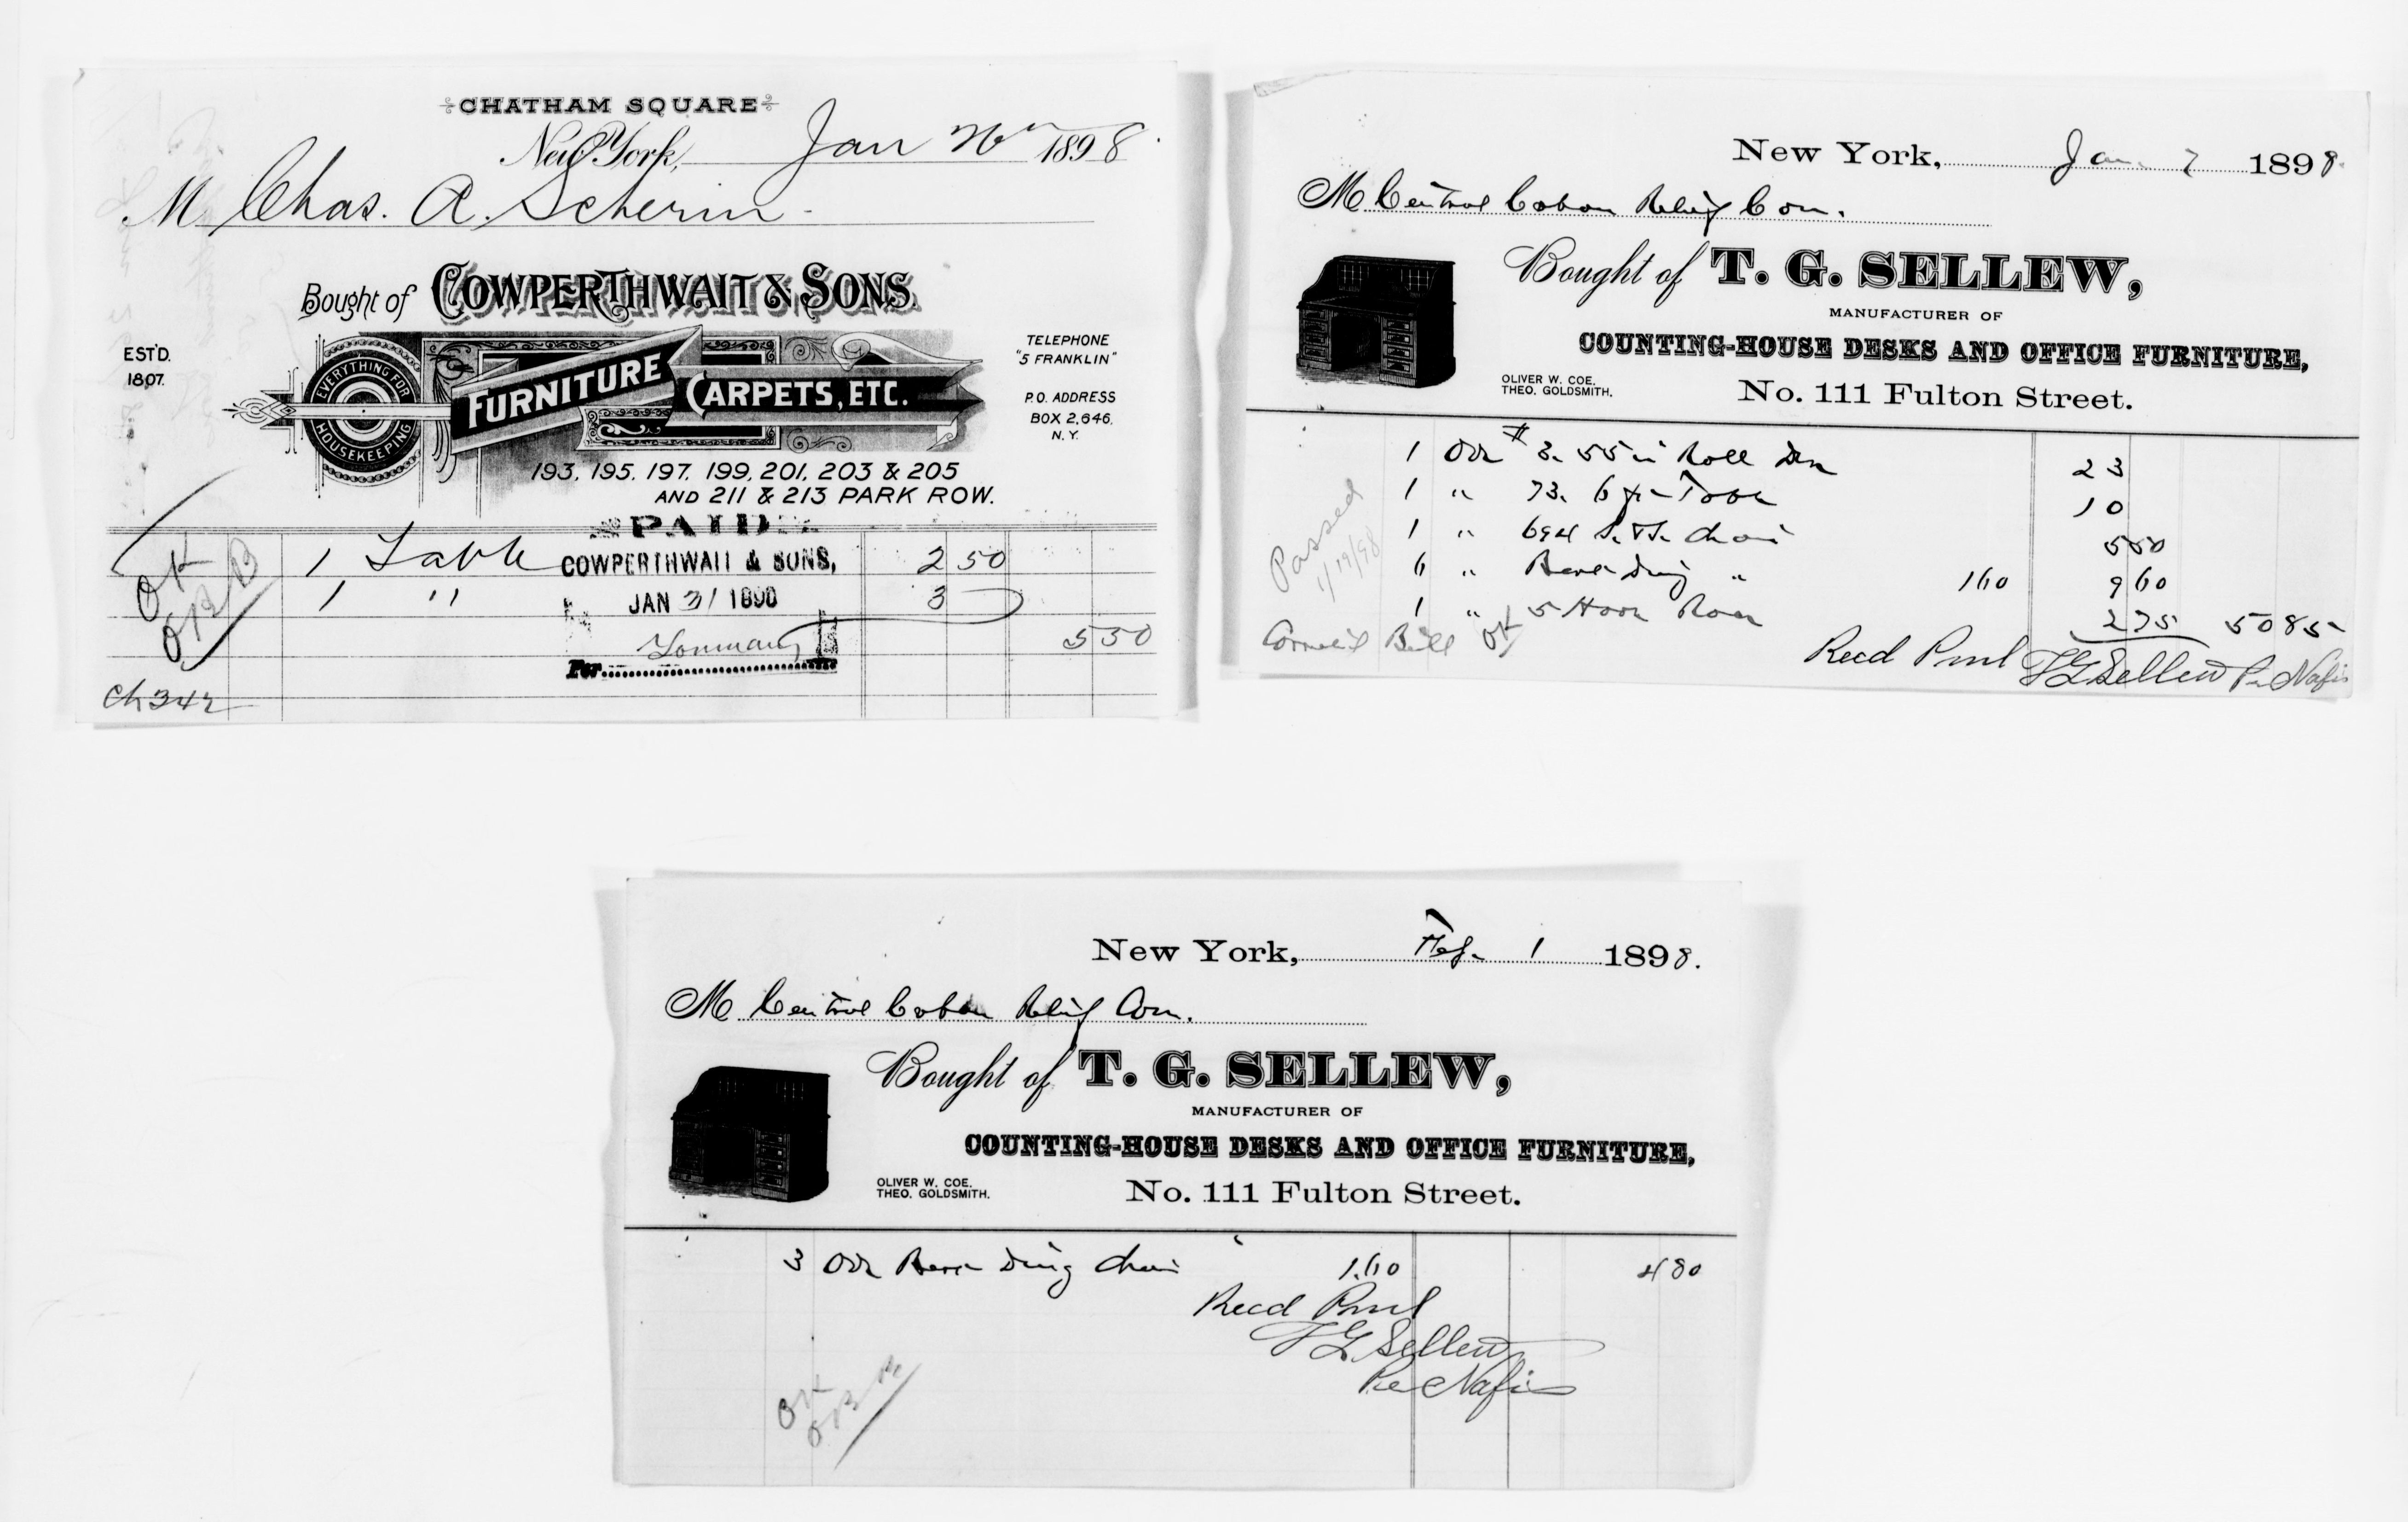 CHATHAM SQUARE
New York, Jan 26th 1898.
M Chas. A. Scherin
Bought of COWPERTHWAIT & SONS.
EST'D. 1807.
EVERYTHING FOR HOUSEKEEPING
FURNITURE CARPETS, ETC.
TELEPHONE
"5 FRANKLIN"
P.O. ADDRESS
BOX 2,646.
N.Y.
193, 195, 197, 199, 201, 203 & 205
AND 211 & 213 PARK ROW.
PAID
1 Table 2 50
COWPERTHWAIT & SONS,
1 " 3
JAN 31 1898
5 50
Per
OK
OBB
Ch 342
New York, Jan. 7 1898.
M Central Cuban Relief Com.
Bought of T. G. SELLEW,
MANUFACTURER OF
COUNTING-HOUSE DESKS AND OFFICE FURNITURE,
OLIVER W. COE.
THEO. GOLDSMITH.
No. 111 Fulton Street.
1 #3. 55 in Roll 23
1 " 73. 6 10
1 " 694 5 50
6 " " 1 60 9 60
1 " 5 Hook 2 75 50 85
Passed
1/19/98
Bill OK
Recd Pmt T G Sellew Per Nafis
New York, Feb. 1 1898.
M Central Cuban Relief Com.
Bought of T. G. SELLEW,
MANUFACTURER OF
COUNTING-HOUSE DESKS AND OFFICE FURNITURE,
OLIVER W. COE.
THEO. GOLDSMITH.
No. 111 Fulton Street.
3 Chair 1.60 4 80
Recd Pmt
T G Sellew
Per Nafis
OK
OBB